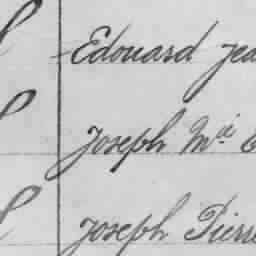 Edouard jea
Joseph Mie E
Joseph Pierre